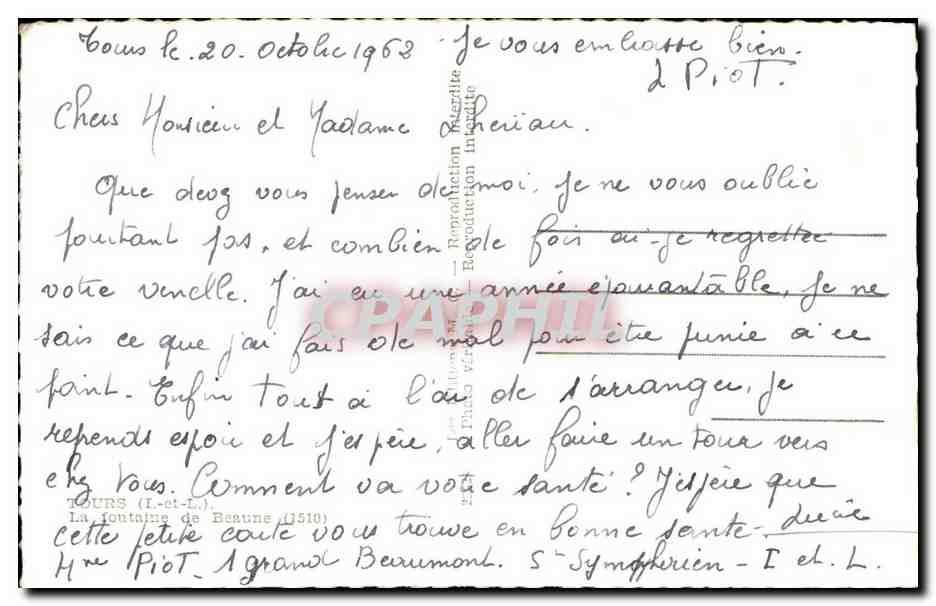 Tours le. 20. Octobre 1962 - Je vous embrasse bien.
L PioT.
Chers Monsieur et Madame Lheriau.
Que devez vous penser de moi. Je ne vous oublie
pourtant pas, et combien de fois ai-je regrettée
votre venelle. J'ai eu une année épouvantable, je ne
sais ce que j'ai fais de mal pour être punie à ce
point. Enfin tout a l'air de s'arranger, je
reprends espoir et j'espère, aller faire un tour vers
chez vous. Comment va votre santé ? J'espère que
cette petite carte vous trouve en bonne santé.
Lucie
Mme PioT - 1 grand Beaumont. St Symphorien - I et. L.
TOURS (I.-et-L.).
La fontaine de Beaune (1510)
Reproduction interdite
Photo véritable - Reproduction interdite
CPAPHIL